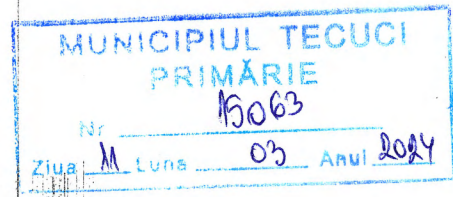 MUNICIPIUL TECUCI
PRIMĂRIE
Nr 15063
Ziua 11 Luna 03 Anul 2024